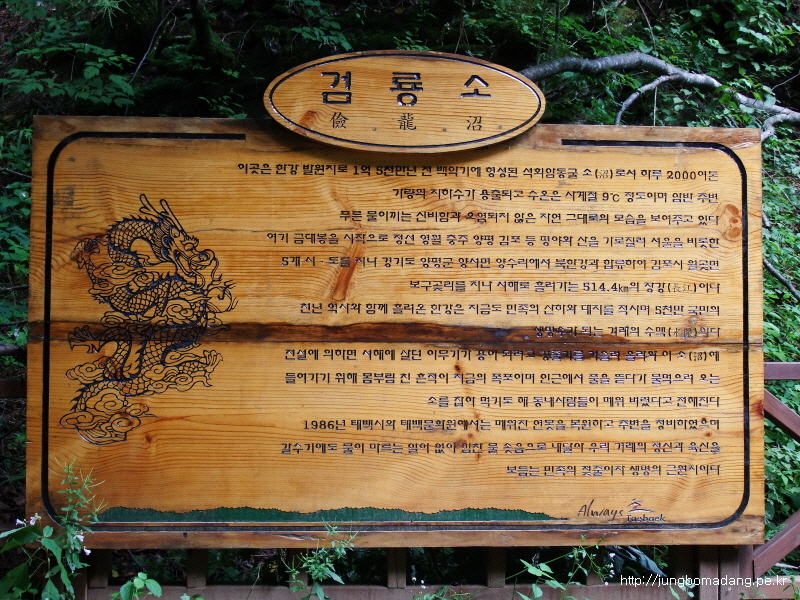 검룡소
儉龍沼
이곳은 한강 발원지로 1억 5천만년 전 백악기에 형성된 석회암동굴 소(沼)로서 하루 2000여톤
가량의 지하수가 용출되고 수온은 사계절 9℃ 정도이며 암반 주변
푸른 물이끼는 신비함과 오염되지 않은 자연 그대로의 모습을 보여주고 있다
여기 금대봉을 시작으로 정선 영월 충주 양평 김포 등 평야와 산을 가로질러 서울을 비롯한
5개 시·도를 지나 경기도 양평군 양서면 양수리에서 북한강과 합류하여 김포시 월곶면
보구곶리를 지나 서해로 흘러가는 514.4㎞의 장강(長江)이다
천년 역사와 함께 흘러온 한강은 지금도 민족의 산하와 대지를 적시며 5천만 국민의
생명수가 되는 겨레의 수맥(水脈)이다
전설에 의하면 서해에 살던 이무기가 용이 되려고 강줄기를 거슬러 올라와 이 소(沼)에
들어가기 위해 몸부림 친 흔적이 지금의 폭포이며 인근에서 풀을 뜯다가 물먹으러 오는
소를 잡아 먹기도 해 동네사람들이 메워 버렸다고 전해진다
1986년 태백시와 태백문화원에서는 메워진 연못을 복원하고 주변을 정비하였으며
갈수기에도 물이 마르는 일이 없이 힘찬 물 솟음으로 내달아 우리 겨레의 정신과 육신을
보듬는 민족의 젖줄이자 생명의 근원지이다
Always taebaek
http://jungbomadang.pe.kr